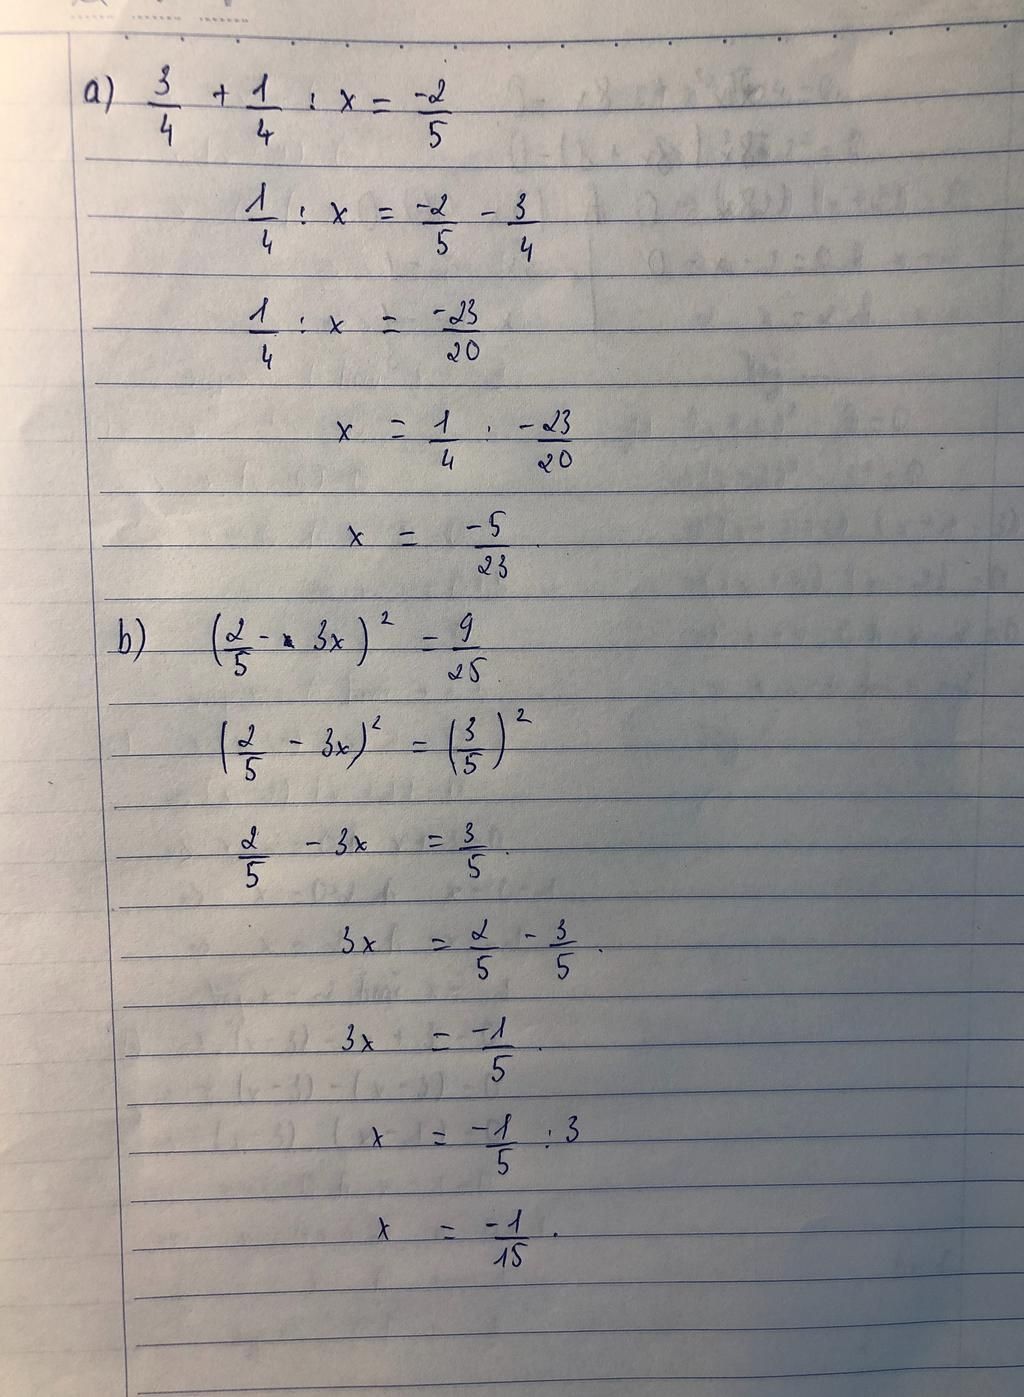 a) 3/4 + 1/4 : x = -2/5
1/4 : x = -2/5 - 3/4
1/4 : x = -23/20
x = 1/4 : -23/20
x = -5/23.
b) (2/5 - 3x)² = 9/25.
(2/5 - 3x)² = (3/5)²
2/5 - 3x = 3/5.
3x = 2/5 - 3/5.
3x = -1/5.
x = -1/5 : 3
x = -1/15.